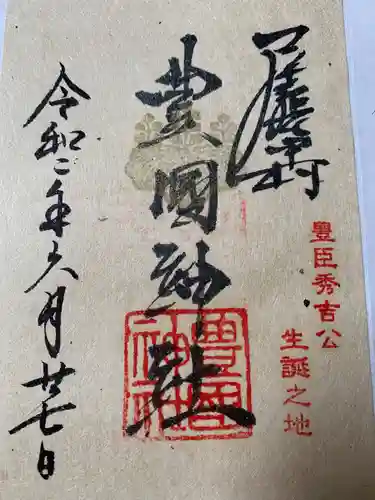 尾張中村
豊臣秀吉公
生誕之地
豊國神社
豊國神社
令和二年六月廿七日